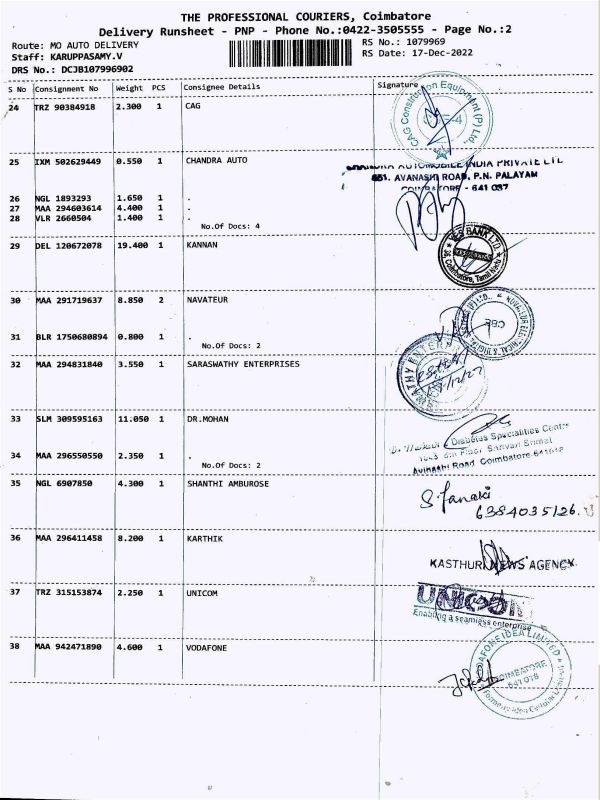 THE PROFESSIONAL COURIERS, Coimbatore
Delivery Runsheet - PNP - Phone No.:0422-3505555 - Page No.:2
Route: MO AUTO DELIVERY
RS No.: 1079969
Staff: KARUPPASAMY.V
RS Date: 17-Dec-2022
DRS No.: DCJB107996902
S No Consignment No Weight PCS Consignee Details Signature
24 TRZ 90384918 2.300 1 CAG
CAG Construction Equipment (P) Ltd.
25 IXM 502629449 0.550 1 CHANDRA AUTO
AUTOMOBILE INDIA PRIVATE LTD
851, AVANASHI ROAD, P.N. PALAYAM
COIMBATORE - 641 037
26 NGL 1893293 1.650 1 .
27 MAA 294603614 4.400 1 .
28 VLR 2660504 1.400 1 .
No.Of Docs: 4
29 DEL 120672078 19.400 1 KANNAN
BANK LTD.
Coimbatore, Tamil Nadu
30 MAA 291719637 8.850 2 NAVATEUR
CBE
31 BLR 1750680894 0.800 1 .
No.Of Docs: 2
32 MAA 294831840 3.550 1 SARASWATHY ENTERPRISES
33 SLM 309595163 11.050 1 DR.MOHAN
Diabetes Specialities Centre
Avinashi Road Coimbatore
34 MAA 296550550 2.350 1 .
No.Of Docs: 2
35 NGL 6907850 4.300 1 SHANTHI AMBUROSE
S. Janaki
6384035126
36 MAA 296411458 8.200 1 KARTHIK
KASTHURI NEWS AGENCY
37 TRZ 315153874 2.250 1 UNICOM
Enabling a seamless enterprise
38 MAA 942471890 4.600 1 VODAFONE
VODAFONE IDEA LIMITED
COIMBATORE
641 018